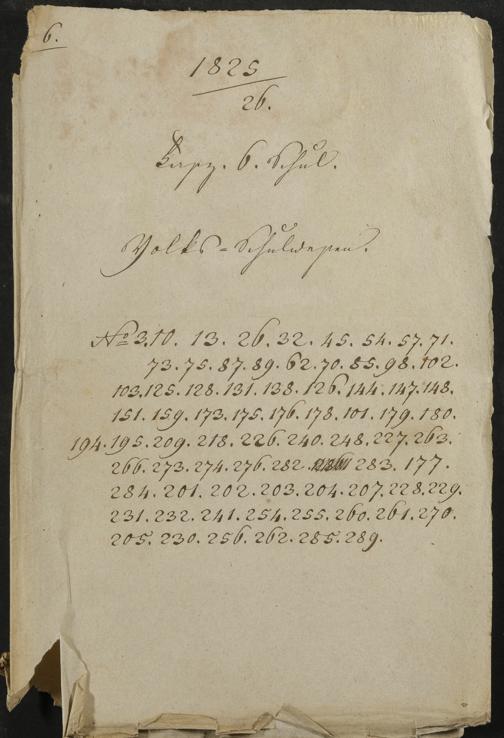 6.
1825
26.
6. Schul.
Volks-Schulwesen.
No 3.10. 13. 26. 32. 45. 54. 57. 71.
73. 75. 87. 89. 62. 70. 85. 98. 102.
103. 125. 128. 131. 138. 126. 144. 147. 148.
151. 159. 173. 175. 176. 178. 101. 179. 180.
194. 195. 209. 218. 226. 240. 248. 227. 263.
266. 273. 274. 276. 282. 283. 177.
284. 201. 202. 203. 204. 207. 228. 229.
231. 232. 241. 254. 255. 260. 261. 270.
205. 230. 256. 262. 285. 289.